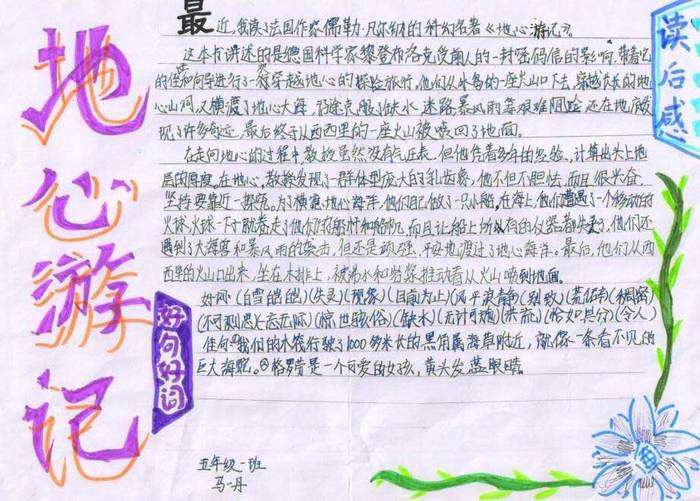 地心游记
读后感
最近，我读了法国作家儒勒·凡尔纳的科幻名著《地心游记》。
这本书讲述的是德国科学家黎登布洛克受前人的一封密码信的影响，带着他
的侄和向导进行了一次穿越地心的探险旅行。他们从冰岛的一座火山口下去，穿越长长的地
心山洞，又横渡了地心大海，沿途克服了缺水、迷路、暴风雨等艰难险，还在地底发
现了许多奇迹，最后终于从西西里的一座火山被喷回了地面。
在走向地心的过程中，教授虽然没有气压表，但他凭着多年的经验，计算出头上地
层的厚度。在地心，教授发现了一群体型庞大的乳齿象，他不但不胆怯，而且很兴奋，
坚持要靠近一探究。为了横渡地心海洋，他们自做了一只小船。在海上，他们遭遇了个移动的
火球，火球一下子就卷走了他们的船桅和船帆，而且让船上所有的仪器都失灵了，他们还
遇到了大海兽和暴风雨的袭击，但还是顽强、平安地渡过了地心海洋。最后，他们从西
西里的火山口出来，坐在木排上，被沸水和岩浆推动着从火山喷到地面。
好句好词
好词：(白雪皑皑)(失灵)(现象)(目前为止)(风平浪静)(别致)(荒僻)(稠密)
(不可思思)(忐忑)(惊世骇俗)(缺水)(无计可施)(洪流)(恰如其份)(令人)
佳句：我们的木筏行驶了1000多米长的黑角属海草附近，就像一条看不见的
巨大海蛇。格劳本是一个可爱的女孩，黄头发蓝眼睛。
五年级一班
马丹